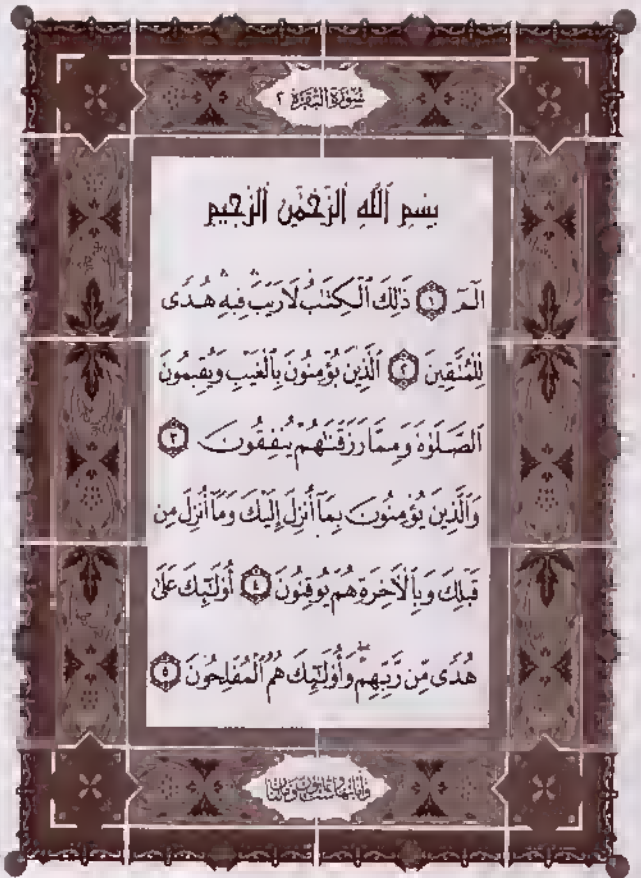 سُورَةُ الْبَقَرَةِ ٢
بِسْمِ ٱللَّهِ ٱلرَّحْمَٰنِ ٱلرَّحِيمِ
الٓمٓ ١ ذَٰلِكَ ٱلْكِتَٰبُ لَا رَيْبَ ۛ فِيهِ ۛ هُدًى
لِّلْمُتَّقِينَ ٢ ٱلَّذِينَ يُؤْمِنُونَ بِٱلْغَيْبِ وَيُقِيمُونَ
ٱلصَّلَوٰةَ وَمِمَّا رَزَقْنَٰهُمْ يُنفِقُونَ ٣
وَٱلَّذِينَ يُؤْمِنُونَ بِمَآ أُنزِلَ إِلَيْكَ وَمَآ أُنزِلَ مِن
قَبْلِكَ وَبِٱلْءَاخِرَةِ هُمْ يُوقِنُونَ ٤ أُو۟لَٰٓئِكَ عَلَىٰ
هُدًى مِّن رَّبِّهِمْ ۖ وَأُو۟لَٰٓئِكَ هُمُ ٱلْمُفْلِحُونَ ٥
وآياتها ست وثمانون ومائتان